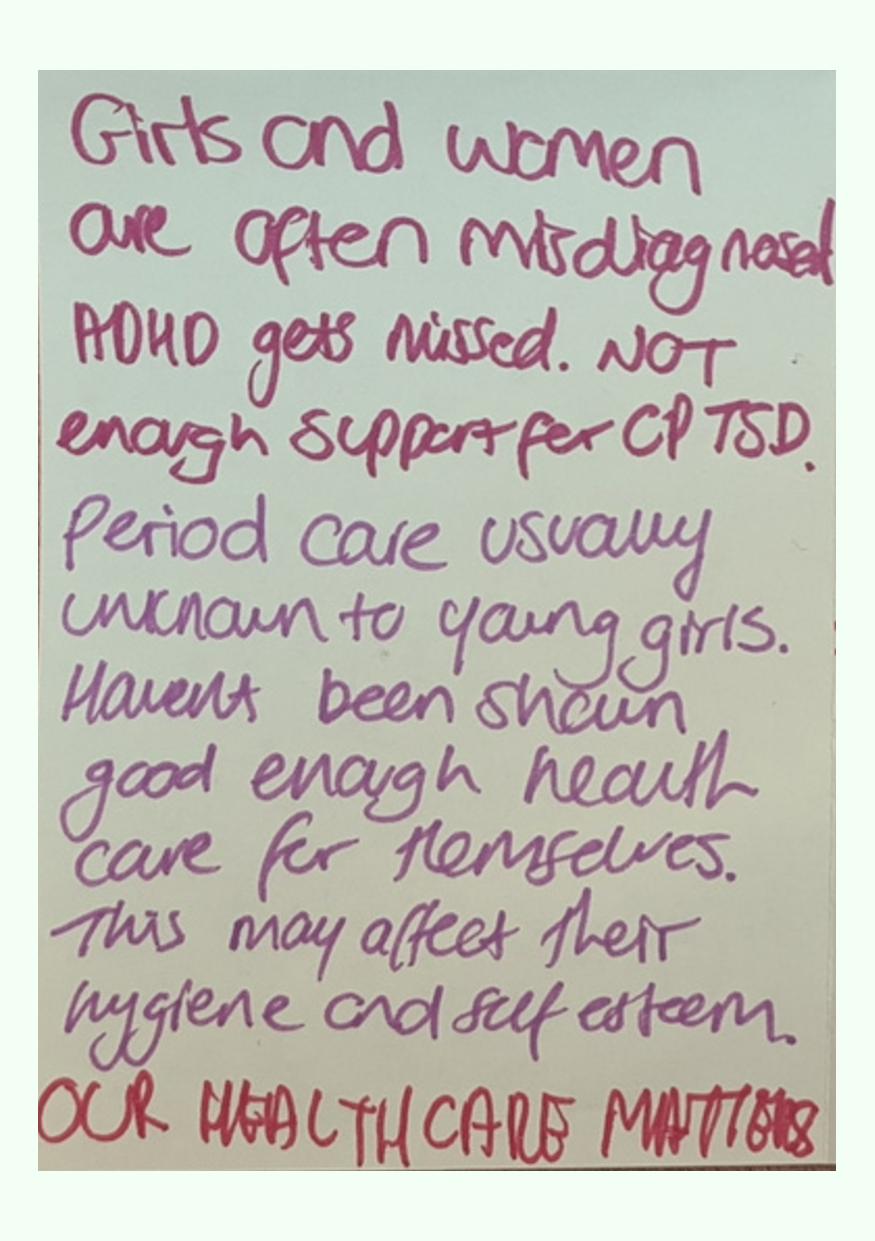 Girls and women
are often misdiagnosed
ADHD gets missed. NOT
enough support for CPTSD.
Period care usually
unknown to young girls.
Havent been shown
good enough health
care for themselves.
This may affect their
hygiene and self esteem.
OUR HEALTHCARE MATTERS